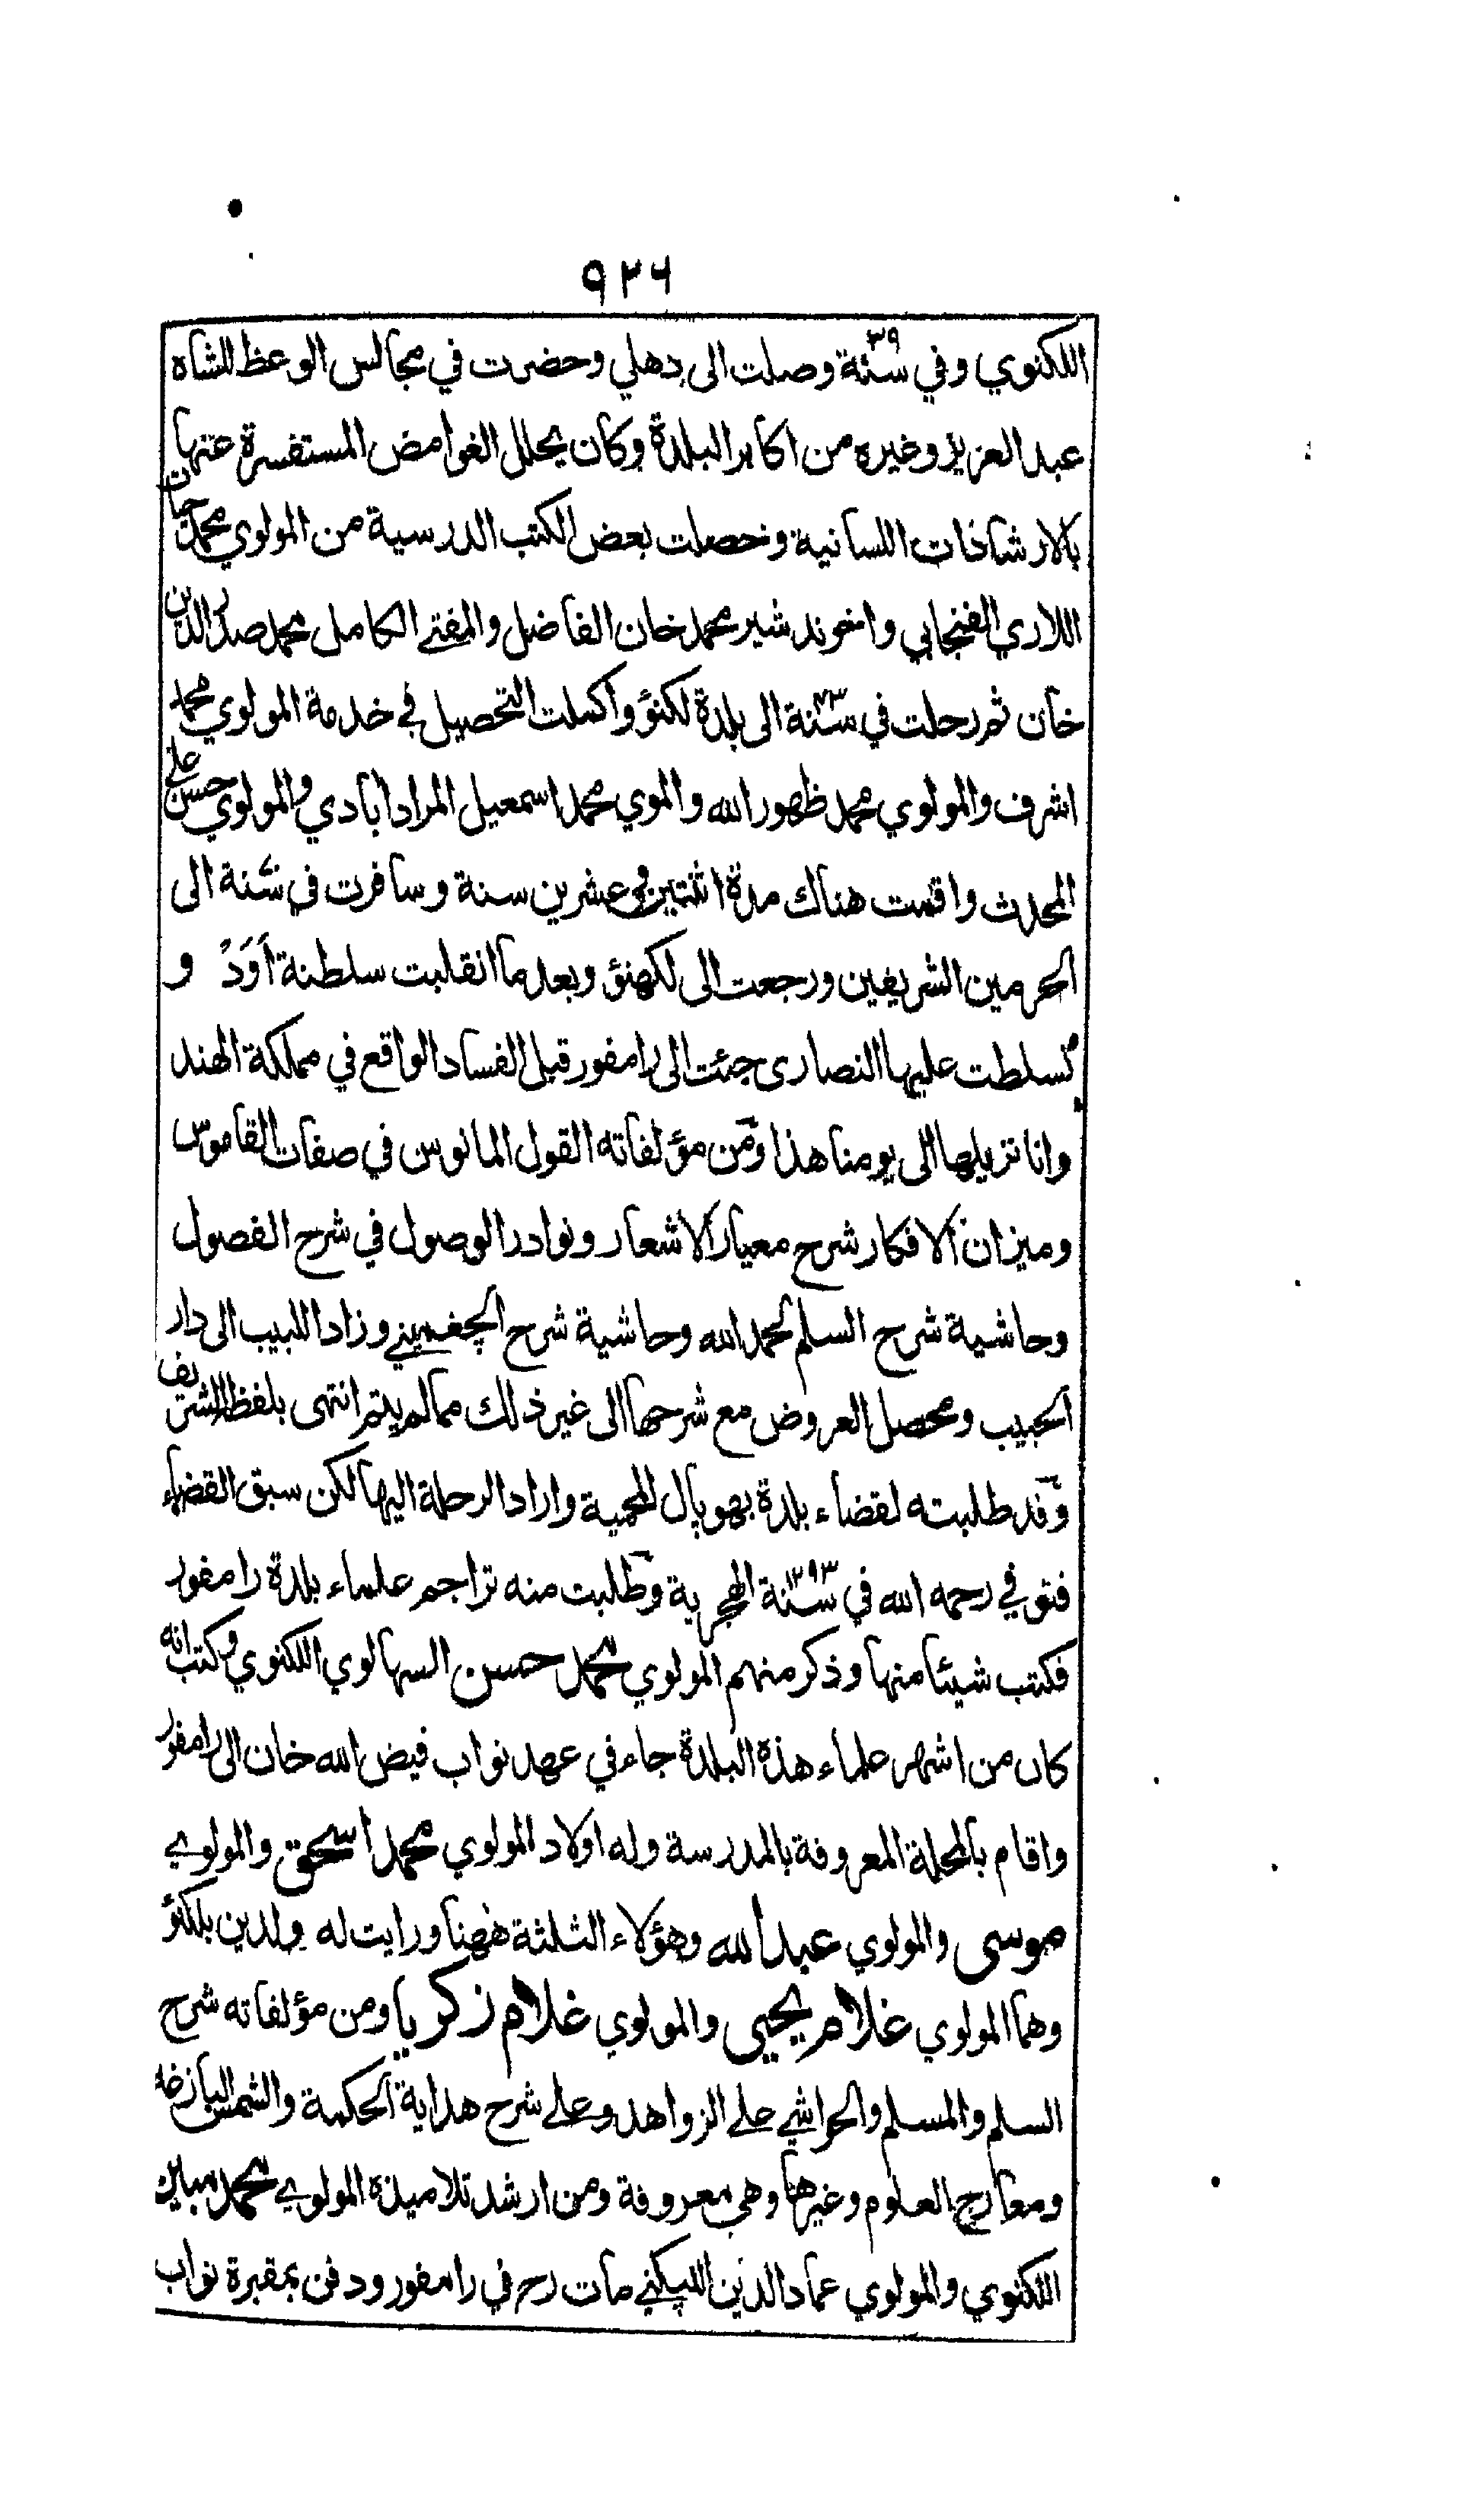 ٩٢٦
اللكنوي وفي سنة ٣٩ وصلت الى دهلي وحضرت في مجالس الوعظ للشاه
عبد العزيز وغيره من اكابر البلدة وكان يحلل الغوامض المستفسرة عنها
بالارشادات اللسانية وحصلت بعض الكتب الدرسية من المولوي محمد حيات
اللاري الفنجابي واخوند شير محمد خان الفاضل والمفتي الكامل محمد صدر الدين
خان ثم رحلت في سنة ٤٣ الى بلدة لكنؤ واكملت التحصيل في خدمة المولوي محمد
اشرف والمولوي محمد ظهور الله والموي محمد اسمعيل المرادابادي والمولوي حسن علي
المحدث واقمت هناك مدة اثنتين وعشرين سنة وسافرت في سنة الى
الحرمين الشريفين ورجعت الى لكهنؤ وبعد ما انقلبت سلطنة اَوَدْ و
تسلطت عليها النصارى جئت الى رامفور قبل الفساد الواقع في مملكة الهند
وانا نزيلها الى يومنا هذا ومن مؤلفاته القول المانوس في صفات القاموس
وميزان الافكار شرح معيار الاشعار ونوادر الوصول في شرح الفصول
وحاشية شرح السلم لحمد الله وحاشية شرح الچغميني وزاد اللبيب الى دار
الحبيب ومحصل العروض مع شرحها الى غير ذلك مما لم يتم انتهى بلفظه الشريف
وقد طلبته لقضاء بلدة بهوپال المحمية واراد الرحلة اليها لكن سبق القضاء
فتوفي رحمه الله في سنة ١٢٩٣ الهجرية وطلبت منه تراجم علماء بلدة رامفور
فكتب شيئا منها وذكر منهم المولوي محمد حسن السهالوي اللكنوي وكتب انه
كان من اشهر علماء هذه البلدة جاء في عهد نواب فيض الله خان الى رامفور
واقام بالمحلة المعروفة بالمدرسة وله اولاد المولوي محمد اسحق والمولوي
موسى والمولوي عبد الله وهؤلاء الثلثة ههنا ورايت له ولدين بلكنؤ
وهما المولوي غلام يحيى والمولوي غلام زكريا ومن مؤلفاته شرح
السلم والمسلم والحواشي على الزواهد وعلى شرح هداية الحكمة والشمس البازغة
ومعارج العلوم وغيرها وهي معروفة ومن ارشد تلاميذه المولوي محمد مبين
اللكنوي والمولوي عماد الدين اللبكني مات رح في رامفور ودفن بمقبرة نواب